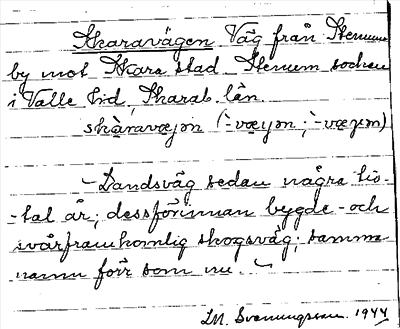 Skaravägen Väg från Stenum
by mot Skara stad Stenum socken
i Valle hd, Skarab. län.
skàravæjən (-̀væyən; -̀væɣən)
– Landsväg sedan några tio-
-tal år; dessförinnan bygde- och
svårframkomlig skogsväg; samma
namn förr som nu. –
I.M. Svenungsson. 1944